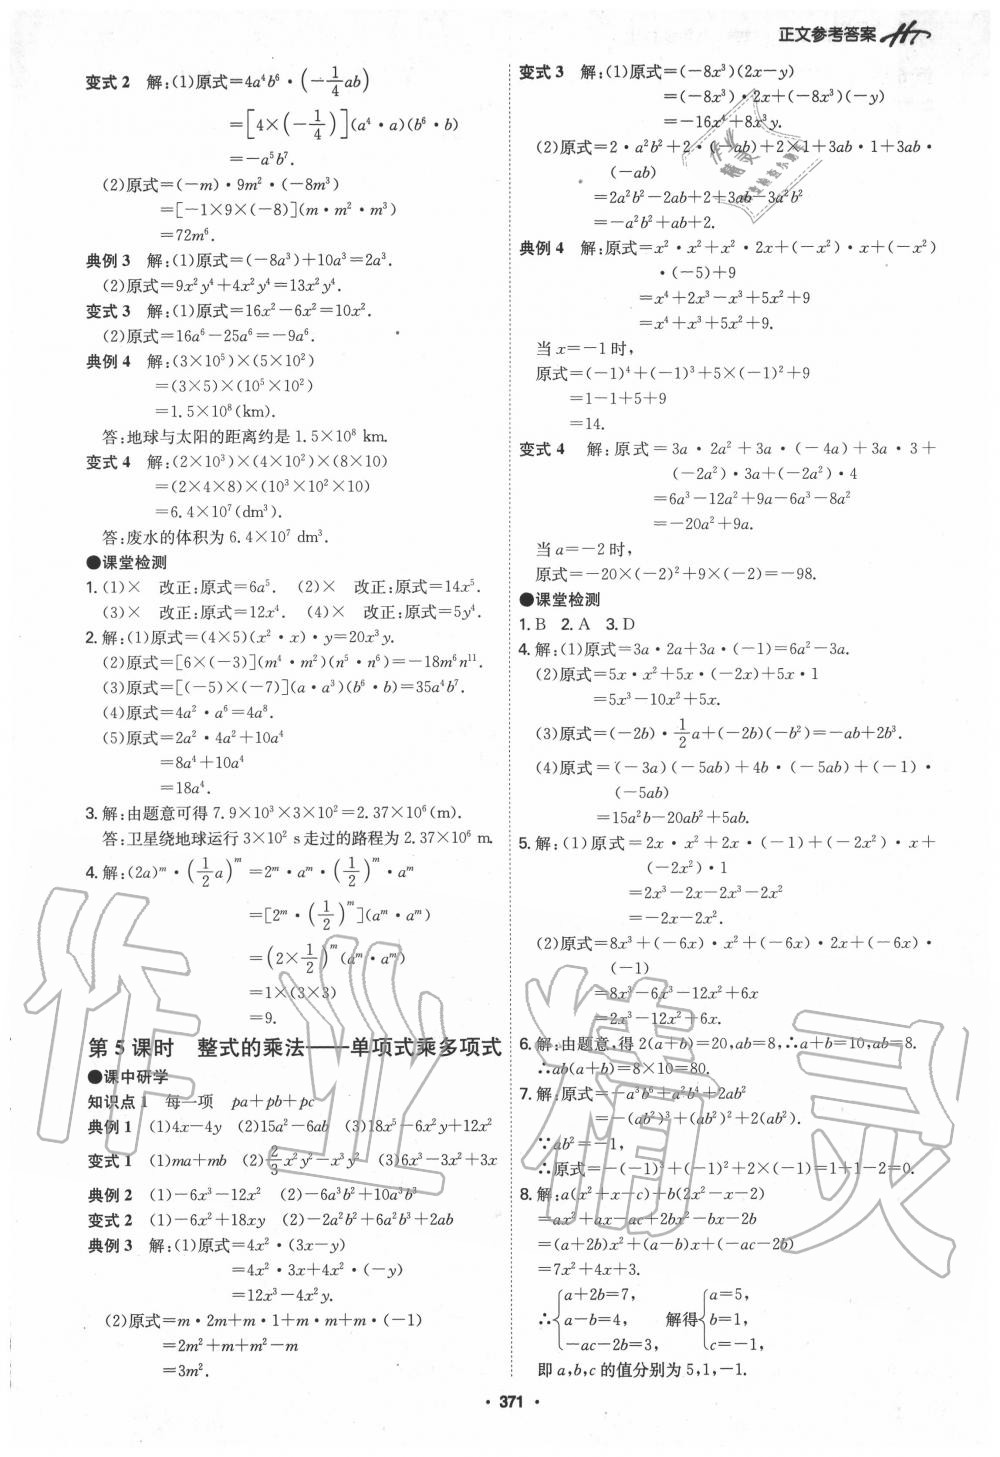 正文参考答案
变式2 解:(1)原式=4a⁴b⁶·(-1/4ab)
=[4×(-1/4)](a⁴·a)(b⁶·b)
=-a⁵b⁷.
(2)原式=(-m)·9m²·(-8m³)
=[-1×9×(-8)](m·m²·m³)
=72m⁶.
典例3 解:(1)原式=(-8a³)+10a³=2a³.
(2)原式=9x²y⁴+4x²y⁴=13x²y⁴.
变式3 解:(1)原式=16x²-6x²=10x².
(2)原式=16a⁶-25a⁶=-9a⁶.
典例4 解:(3×10⁵)×(5×10²)
=(3×5)×(10⁵×10²)
=1.5×10⁸(km).
答:地球与太阳的距离约是1.5×10⁸ km.
变式4 解:(2×10³)×(4×10²)×(8×10)
=(2×4×8)×(10³×10²×10)
=6.4×10⁷(dm³).
答:废水的体积为6.4×10⁷ dm³.
●课堂检测
1.(1)× 改正:原式=6a⁵. (2)× 改正:原式=14x⁵.
(3)× 改正:原式=12x⁴. (4)× 改正:原式=5y⁴.
2.解:(1)原式=(4×5)(x²·x)·y=20x³y.
(2)原式=[6×(-3)](m⁴·m²)(n⁵·n⁶)=-18m⁶n¹¹.
(3)原式=[(-5)×(-7)](a·a³)(b⁶·b)=35a⁴b⁷.
(4)原式=4a²·a⁶=4a⁸.
(5)原式=2a²·4a²+10a⁴
=8a⁴+10a⁴
=18a⁴.
3.解:由题意可得7.9×10³×3×10²=2.37×10⁶(m).
答:卫星绕地球运行3×10² s走过的路程为2.37×10⁶ m.
4.解:(2a)ᵐ·(1/2a)ᵐ=2ᵐ·aᵐ·(1/2)ᵐ·aᵐ
=[2ᵐ·(1/2)ᵐ](aᵐ·aᵐ)
=(2×1/2)ᵐ(aᵐ·aᵐ)
=1×(3×3)
=9.
第5课时 整式的乘法——单项式乘多项式
●课中研学
知识点1 每一项 pa+pb+pc
典例1 (1)4x-4y (2)15a²-6ab (3)18x⁵-6x²y+12x²
变式1 (1)ma+mb (2)2/3x²y²-x³y² (3)6x³-3x²+3x
典例2 (1)-6x³-12x² (2)-6a³b²+10a³b³
变式2 (1)-6x²+18xy (2)-2a²b²+6a²b³+2ab
典例3 解:(1)原式=4x²·(3x-y)
=4x²·3x+4x²·(-y)
=12x³-4x²y.
(2)原式=m·2m+m·1+m·m+m·(-1)
=2m²+m+m²-m
=3m².
变式3 解:(1)原式=(-8x³)(2x-y)
=(-8x³)·2x+(-8x³)(-y)
=-16x⁴+8x³y.
(2)原式=2·a²b²+2·(-ab)+2×1+3ab·1+3ab·
(-ab)
=2a²b²-2ab+2+3ab-3a²b²
=-a²b²+ab+2.
典例4 解:原式=x²·x²+x²·2x+(-x²)·x+(-x²)
·(-5)+9
=x⁴+2x³-x³+5x²+9
=x⁴+x³+5x²+9.
当x=-1时,
原式=(-1)⁴+(-1)³+5×(-1)²+9
=1-1+5+9
=14.
变式4 解:原式=3a·2a²+3a·(-4a)+3a·3+
(-2a²)·3a+(-2a²)·4
=6a³-12a²+9a-6a³-8a²
=-20a²+9a.
当a=-2时,
原式=-20×(-2)²+9×(-2)=-98.
●课堂检测
1.B 2.A 3.D
4.解:(1)原式=3a·2a+3a·(-1)=6a²-3a.
(2)原式=5x·x²+5x·(-2x)+5x·1
=5x³-10x²+5x.
(3)原式=(-2b)·1/2a+(-2b)(-b²)=-ab+2b³.
(4)原式=(-3a)(-5ab)+4b·(-5ab)+(-1)·
(-5ab)
=15a²b-20ab²+5ab.
5.解:(1)原式=2x·x²+2x·(-1)+(-2x²)·x+
(-2x²)·1
=2x³-2x-2x³-2x²
=-2x-2x².
(2)原式=8x³+(-6x)·x²+(-6x)·2x+(-6x)·
(-1)
=8x³-6x³-12x²+6x
=2x³-12x²+6x.
6.解:由题意,得2(a+b)=20,ab=8,∴a+b=10,ab=8.
∴ab(a+b)=8×10=80.
7.解:原式=-a³b⁶+a²b⁴+2ab²
=-(ab²)³+(ab²)²+2(ab²).
∵ab²=-1,
∴原式=-(-1)³+(-1)²+2×(-1)=1+1-2=0.
8.解:a(x²+x-c)+b(2x²-x-2)
=ax²+ax-ac+2bx²-bx-2b
=(a+2b)x²+(a-b)x+(-ac-2b)
=7x²+4x+3.
∴{a+2b=7, a-b=4, -ac-2b=3, 解得{a=5, b=1, c=-1.
即a,b,c的值分别为5,1,-1.
·371·
作业精灵